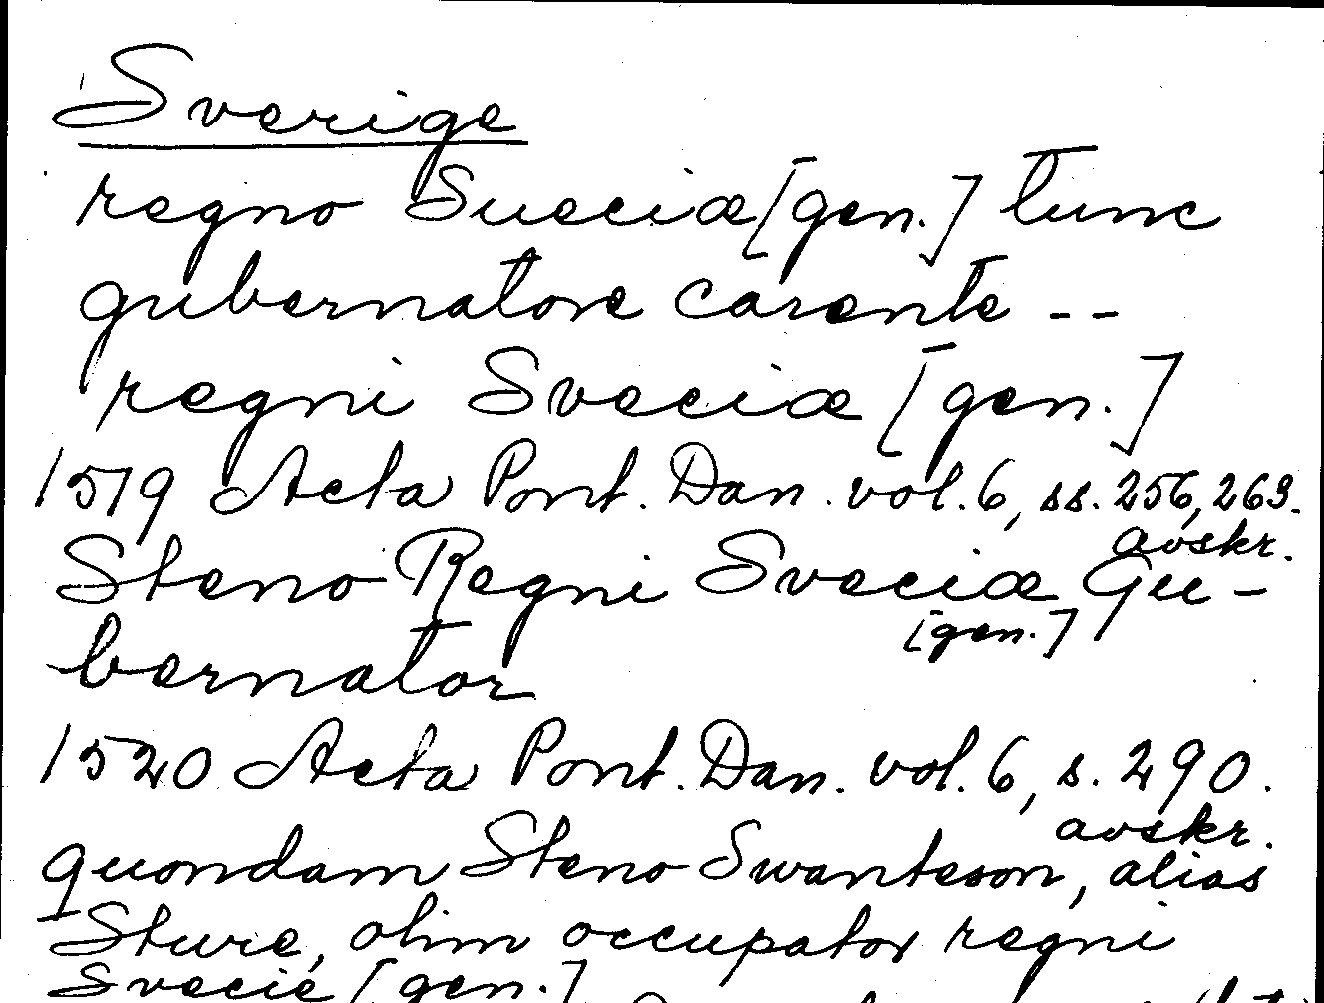 Sverige
regno Sueciæ [gen.] tunc
gubernatore carente --
regni Sveciæ [gen.]
1519 Acta Pont. Dan. vol. 6, ss. 256, 263.
avskr.
Steno Regni Sveciæ Gu-
[gen.]
bernator
1520 Acta Pont. Dan. vol. 6, s. 290.
avskr.
quondam Steno Swanteson, alias
Sture, olim occupator regni
Svecie [gen.]